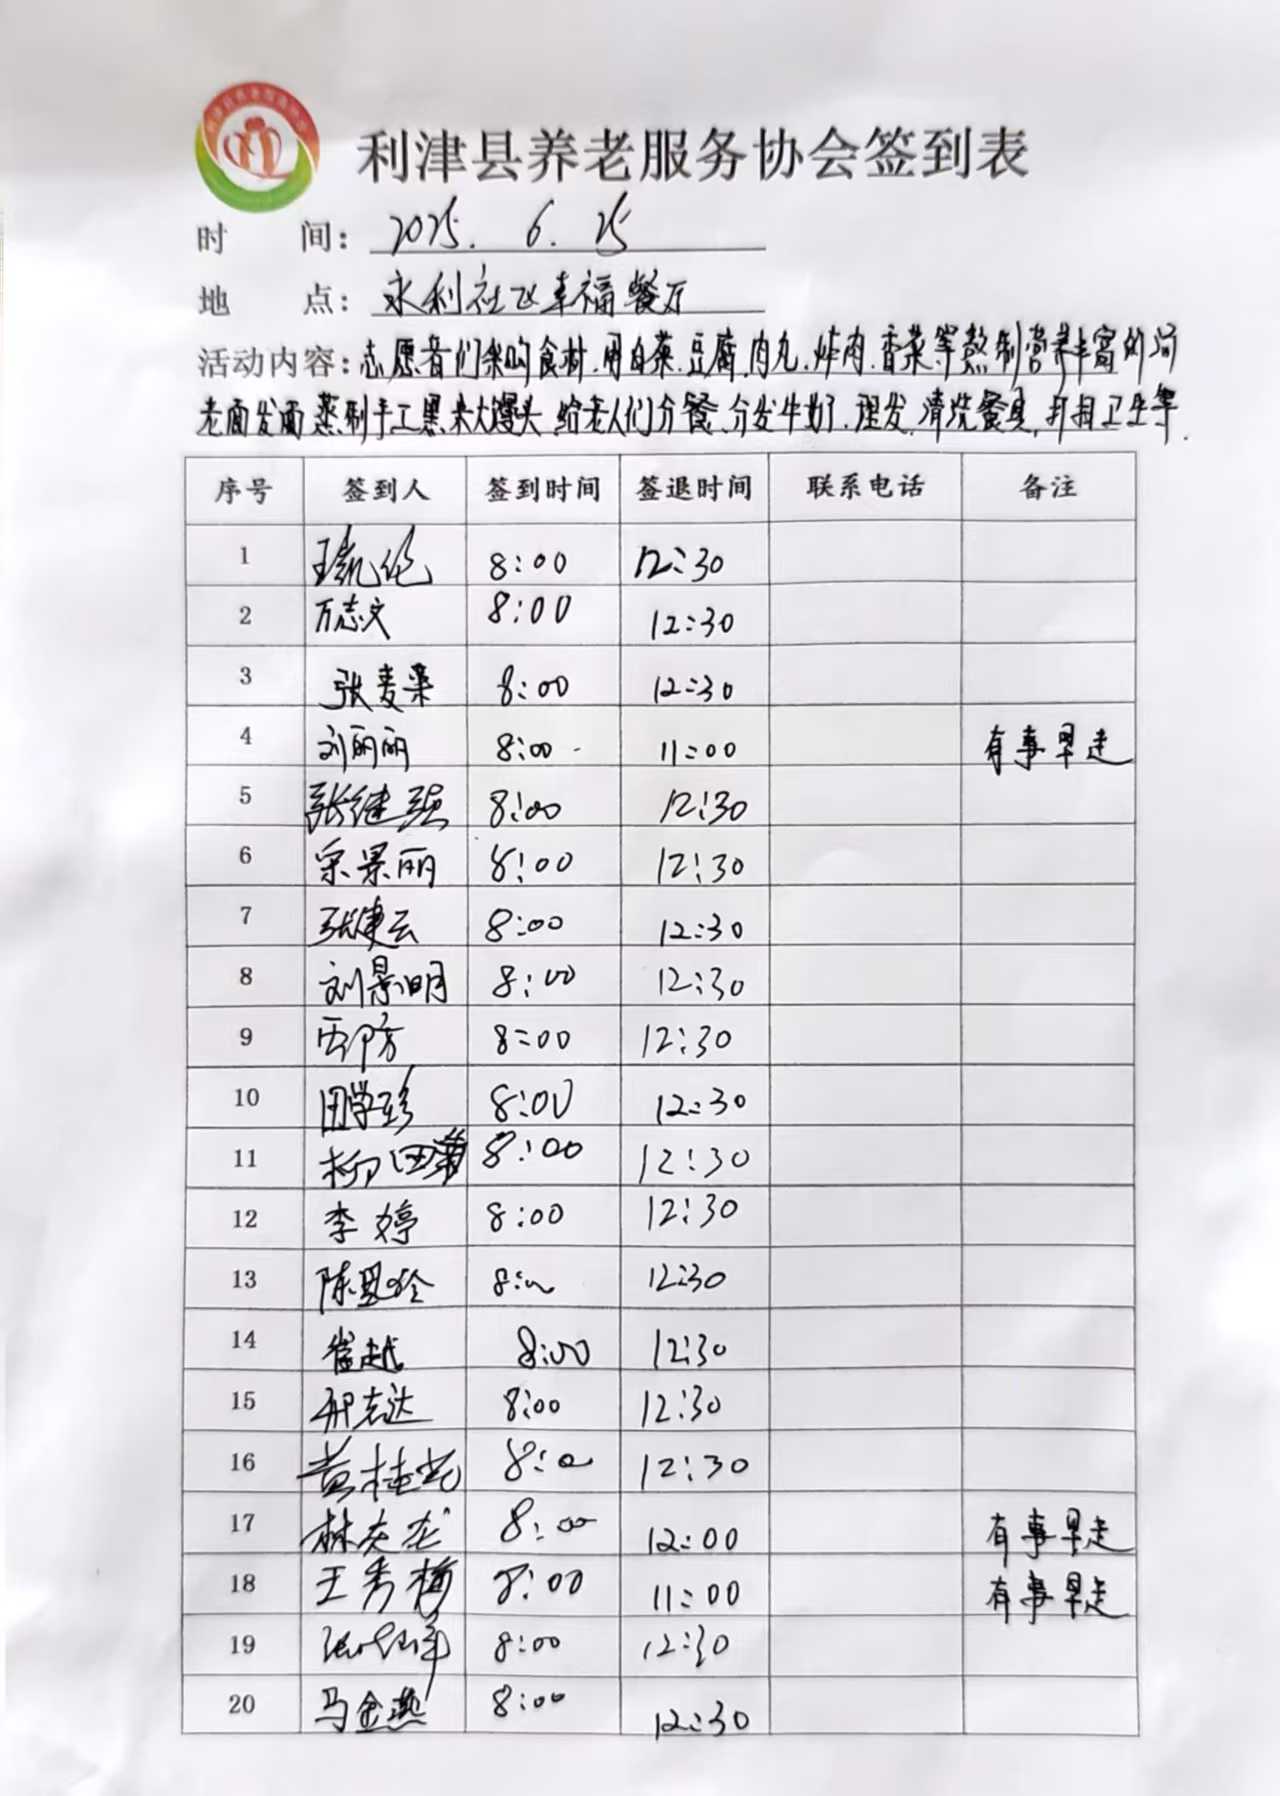 利津县养老服务协会签到表
时 间: 2025. 6. 25
地 点: 永利社区幸福餐厅
活动内容: 志愿者们采购食材,用白菜、豆腐、肉丸、炸肉、香菜等熬制营养丰富的汤
老面发面蒸制手工黑米大馒头 给老人们分餐、分发牛奶、理发、清洗餐具、打扫卫生等.
序号 签到人 签到时间 签退时间 联系电话 备注
1 8:00 12:30
2 万志文 8:00 12:30
3 张麦桑 8:00 12:30
4 刘丽丽 8:00 11:00 有事早走
5 张继强 8:00 12:30
6 宋景丽 8:00 12:30
7 张建云 8:00 12:30
8 刘景明 8:00 12:30
9 8:00 12:30
10 田学珍 8:00 12:30
11 柳田 8:00 12:30
12 李婷 8:00 12:30
13 陈 玲 8:00 12:30
14 崔越 8:00 12:30
15 志达 8:00 12:30
16 黄桂花 8:00 12:30
17 林 8:00 12:00 有事早走
18 王秀梅 8:00 11:00 有事早走
19 8:00 12:30
20 马金燕 8:00 12:30